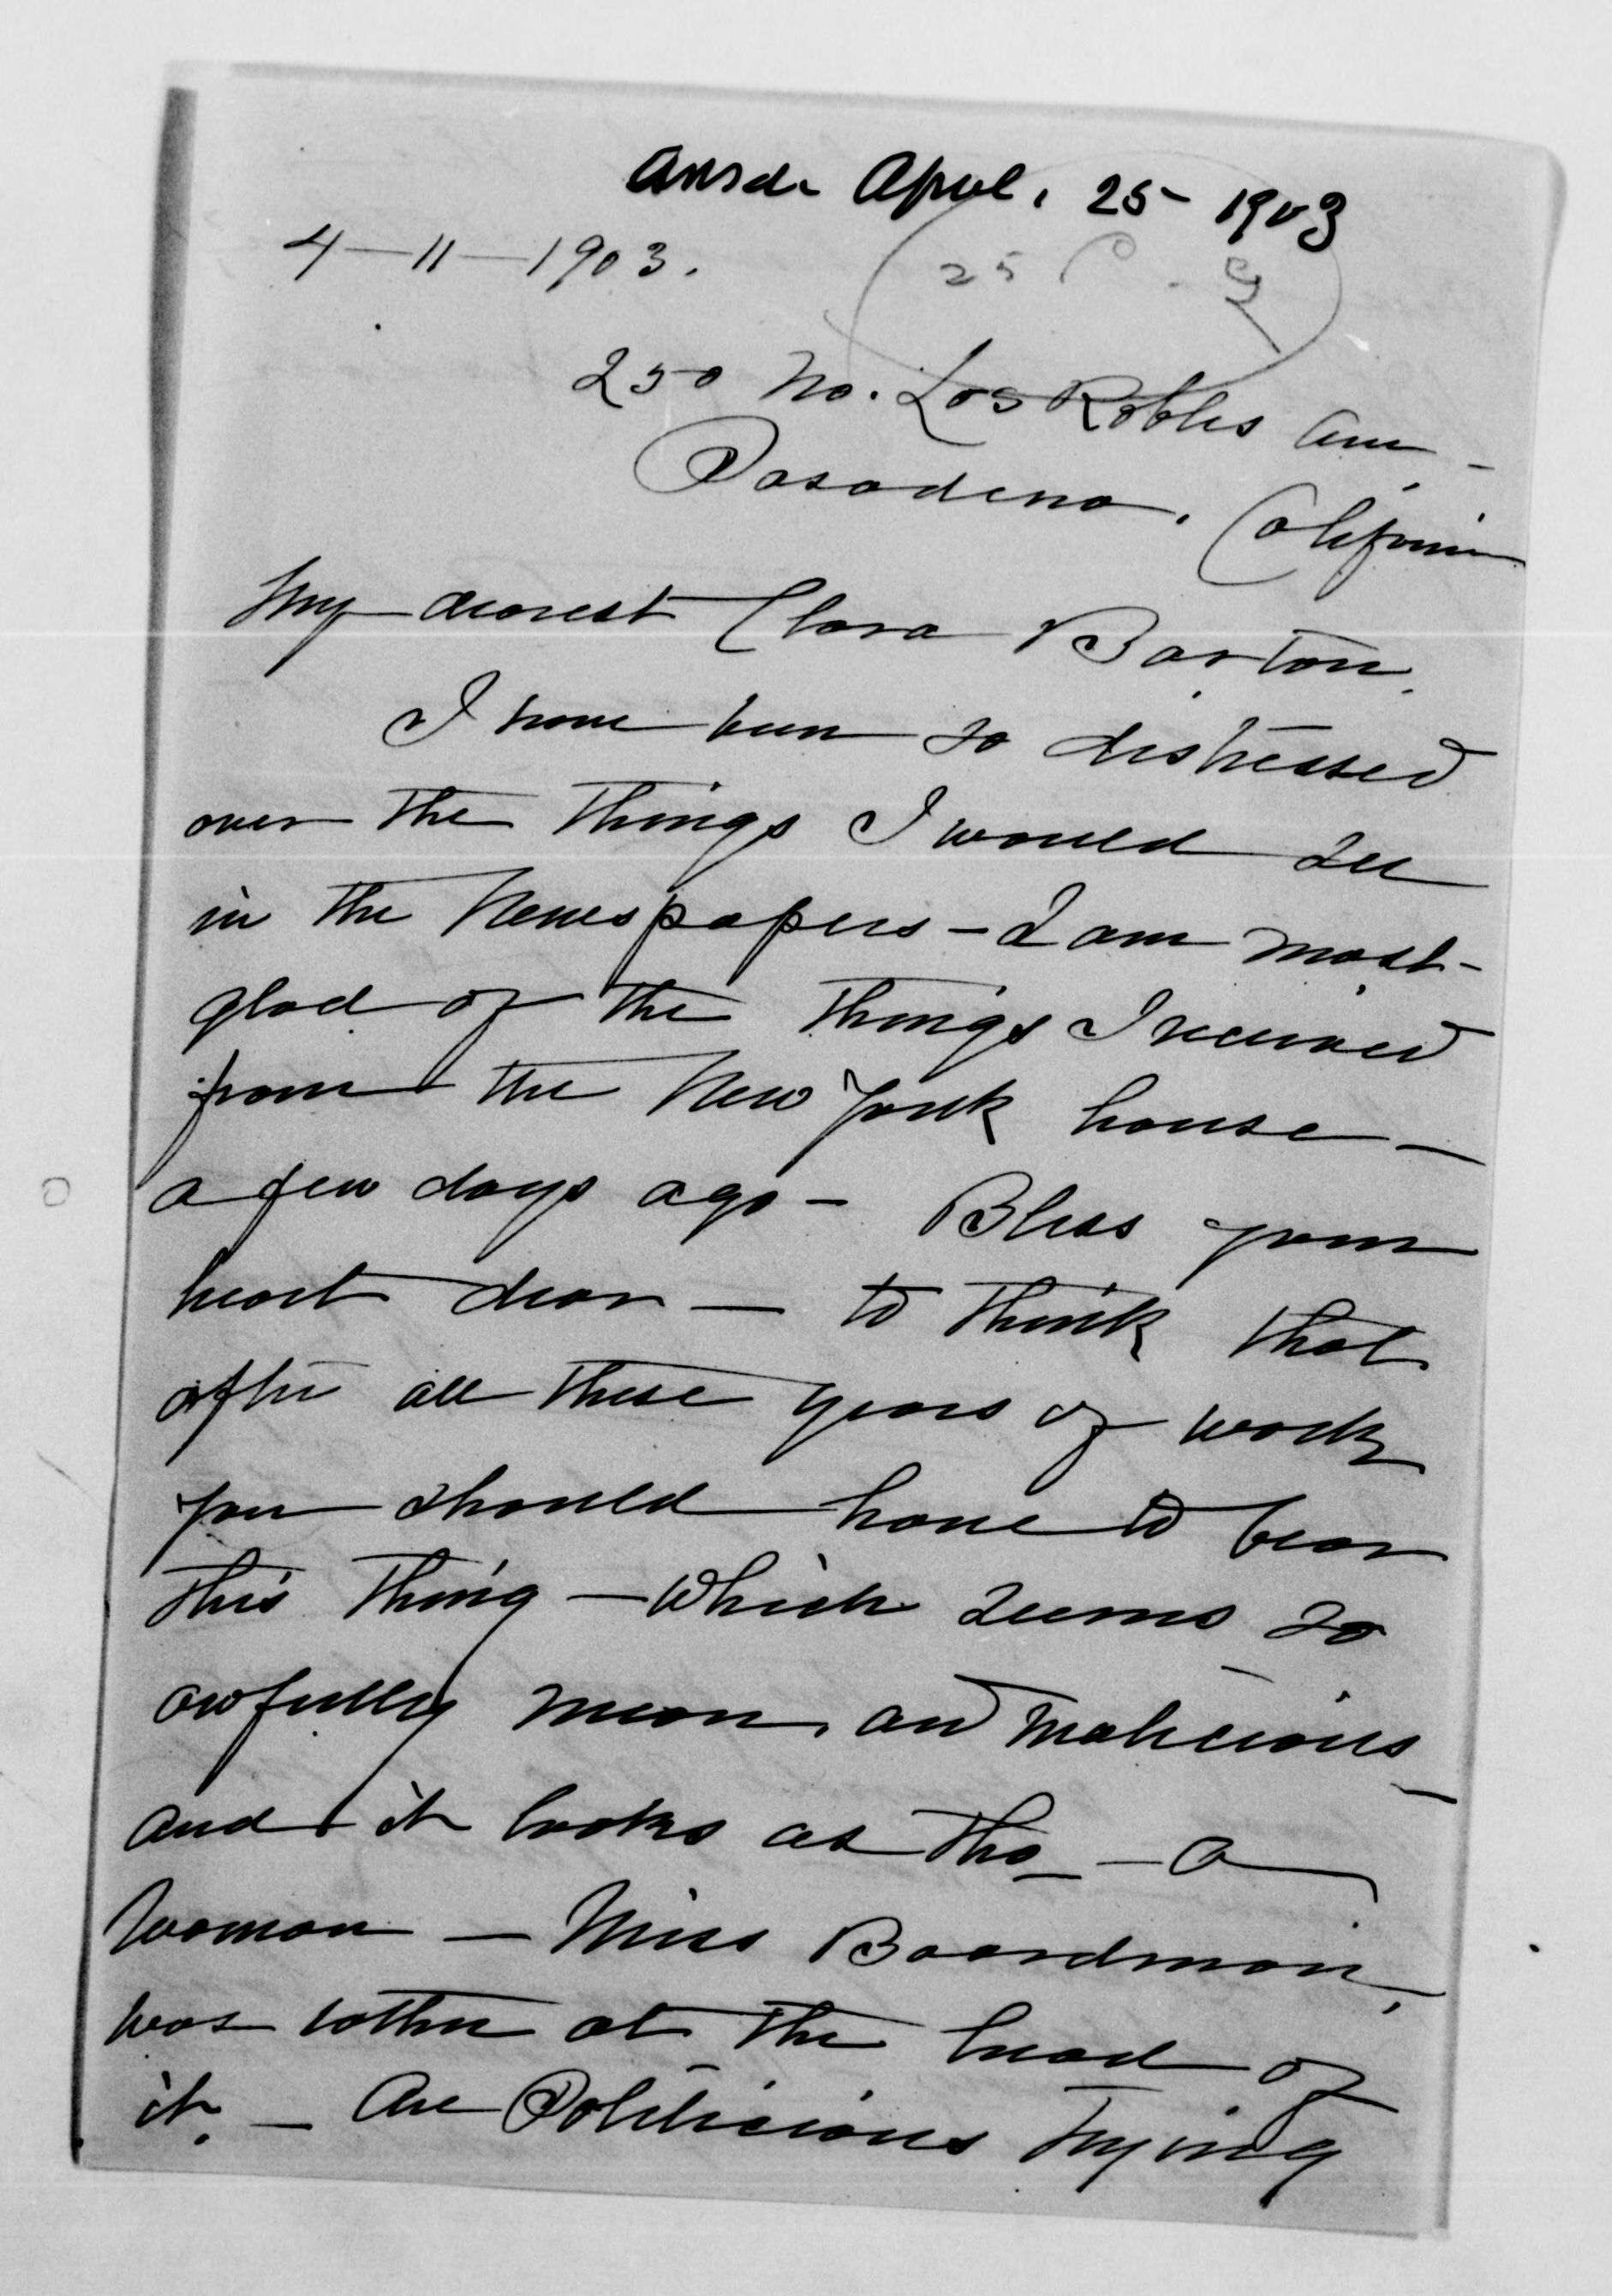 Ansd. April. 25 - 1903
4 - 11 - 1903.
25
250 No. Los Robles Ave -
Pasadena. California
My dearest Clara Barton.
I have been so distressed
over the things I would see
in the Newspapers - I am most -
glad of the things I received
from the New York house -
a few days ago - Bless your
heart dear - to think that
after all these years of work
you should have to bear
this thing - which seems so
awfully mean, and malicious -
and it looks as tho - a
woman - Miss Boardman,
was rather at the head of
it. - Are Politicians trying